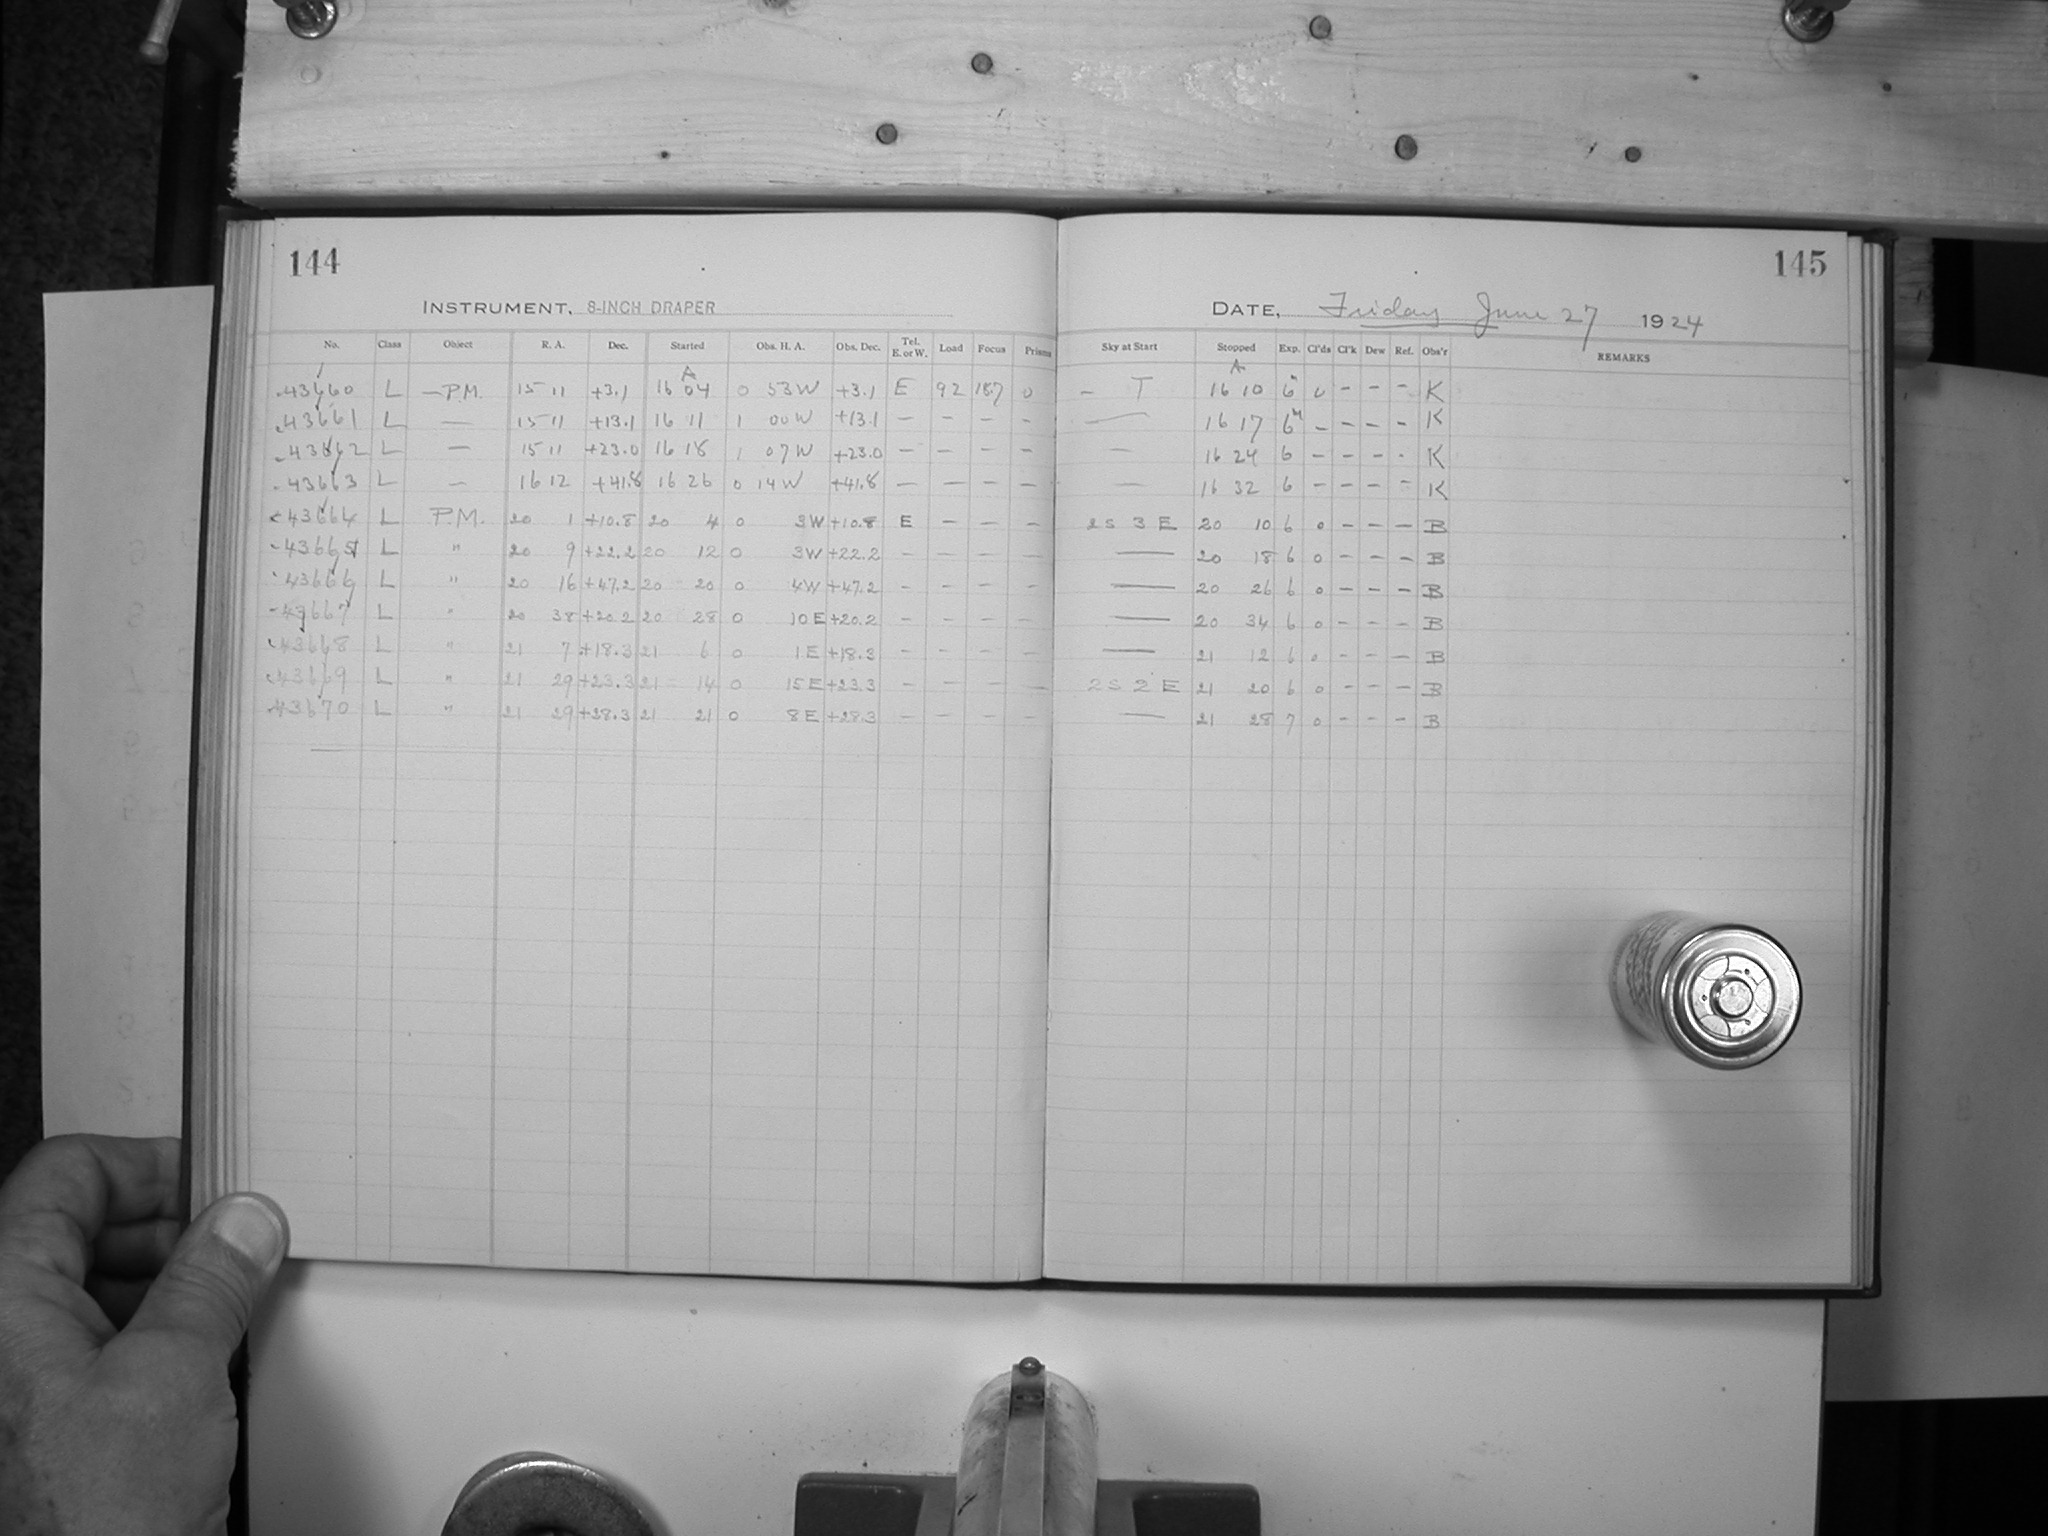 144
145
INSTRUMENT, 8-INCH DRAPER
DATE, Friday June 27 1924
No. Class Object R. A. Dec. Started Obs. H. A. Obs. Dec. Tel. E. or W. Load Focus Prisms Sky at Start Stopped Exp. Cl'ds Cl'k Dew Ref. Obs'r REMARKS
43660 L — P.M. 15 11 +3.1 16 04 0 53 W +3.1 E 92 187 0 – T 16 10 6 0 – – – K
43661 L — 15 11 +13.1 16 11 1 00 W +13.1 – – – – — 16 17 6 – – – – K
43662 L — 15 11 +23.0 16 18 1 07 W +23.0 – – – – — 16 24 6 – – – – K
43663 L — 16 12 +41.8 16 26 0 14 W +41.8 – – – – — 16 32 6 – – – – K
43664 L P.M. 20 1 +10.8 20 4 0 3 W +10.8 E – – – 2 S 3 E 20 10 6 0 – – – B
43665 L " 20 9 +22.2 20 12 0 3 W +22.2 – – – – — 20 18 6 0 – – – B
43666 L " 20 16 +47.2 20 20 0 4 W +47.2 – – – – — 20 26 6 0 – – – B
43667 L " 20 38 +20.2 20 28 0 10 E +20.2 – – – – — 20 34 6 0 – – – B
43668 L " 21 7 +18.3 21 6 0 1 E +18.3 – – – – — 21 12 6 0 – – – B
43669 L " 21 29 +23.3 21 14 0 15 E +23.3 – – – – 2 S 2 E 21 20 6 0 – – – B
43670 L " 21 29 +28.3 21 21 0 8 E +28.3 – – – – — 21 28 7 0 – – – B